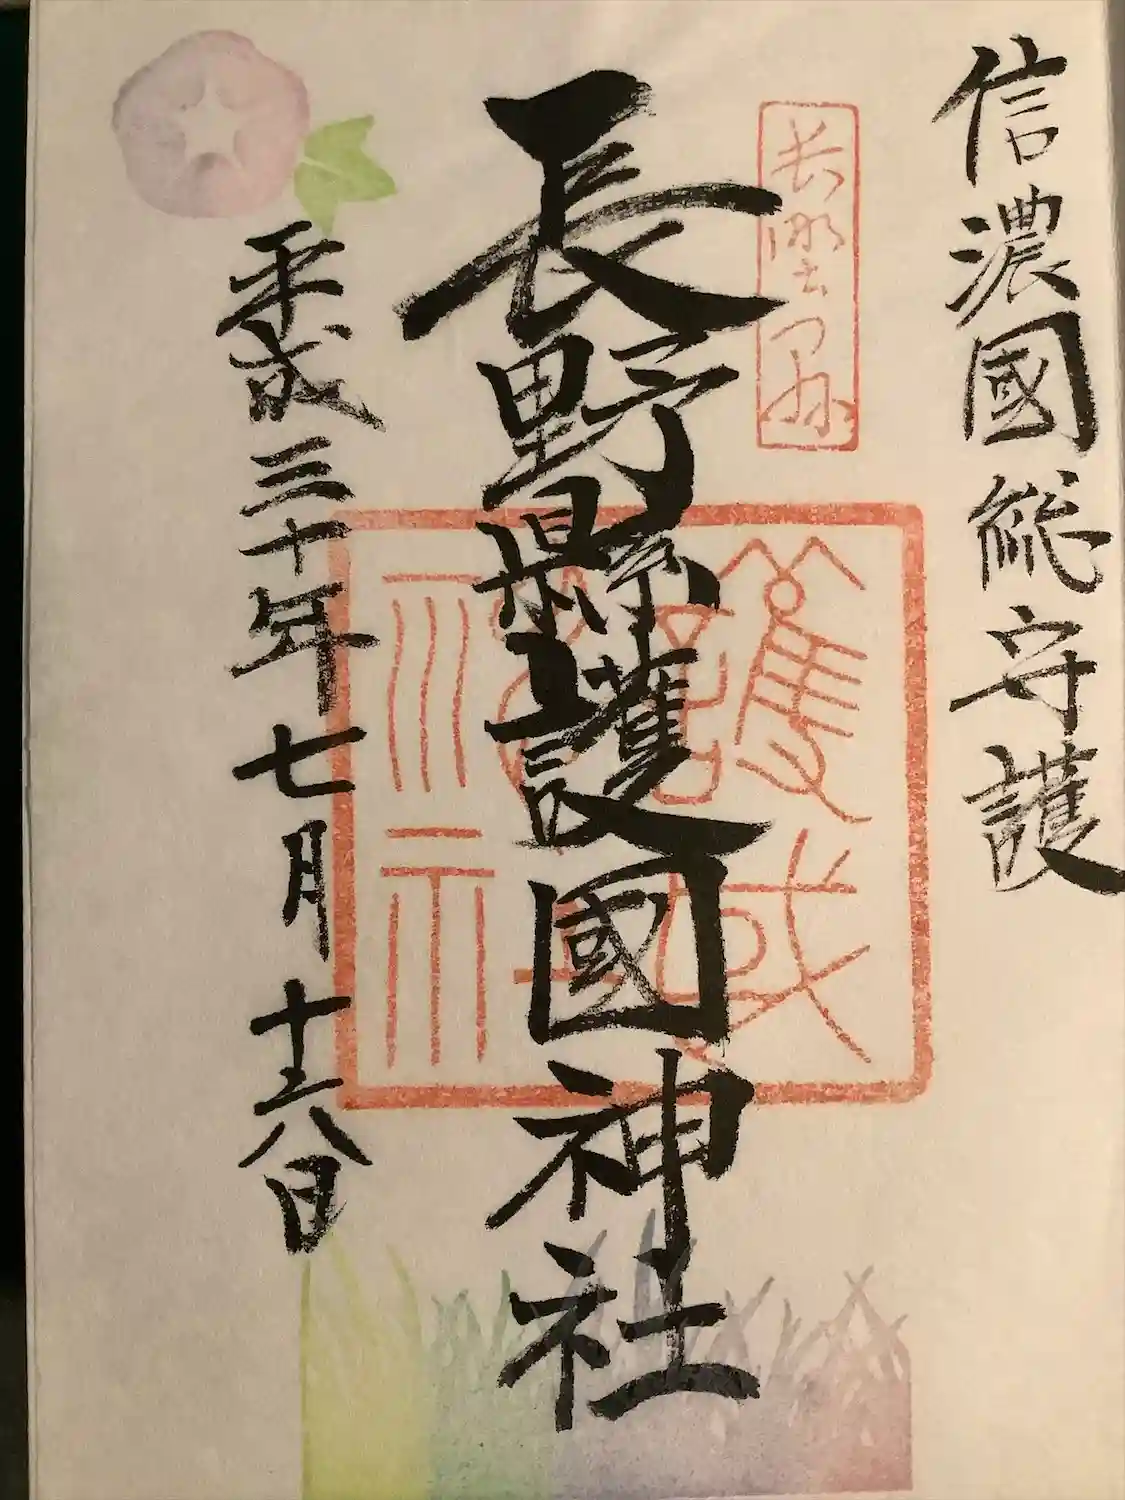 信濃國総守護
長野縣護國神社
護國神社
平成三十年七月十六日